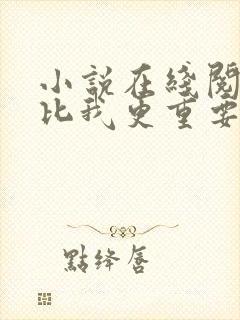 小說在綫閱
比我更重要
點絳唇